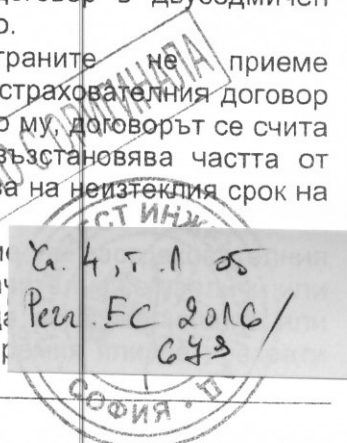 договор в двуседмичен
о.
траните не приеме
страхователния договор
о му, договорът се счита
възстановява частта от
ва на неизтеклия срок на
О С ОРИГИНАЛА
СТ ИНЖ
Чл. 4, т. 1 от
Регл. ЕС 2016/
679
СОФИЯ